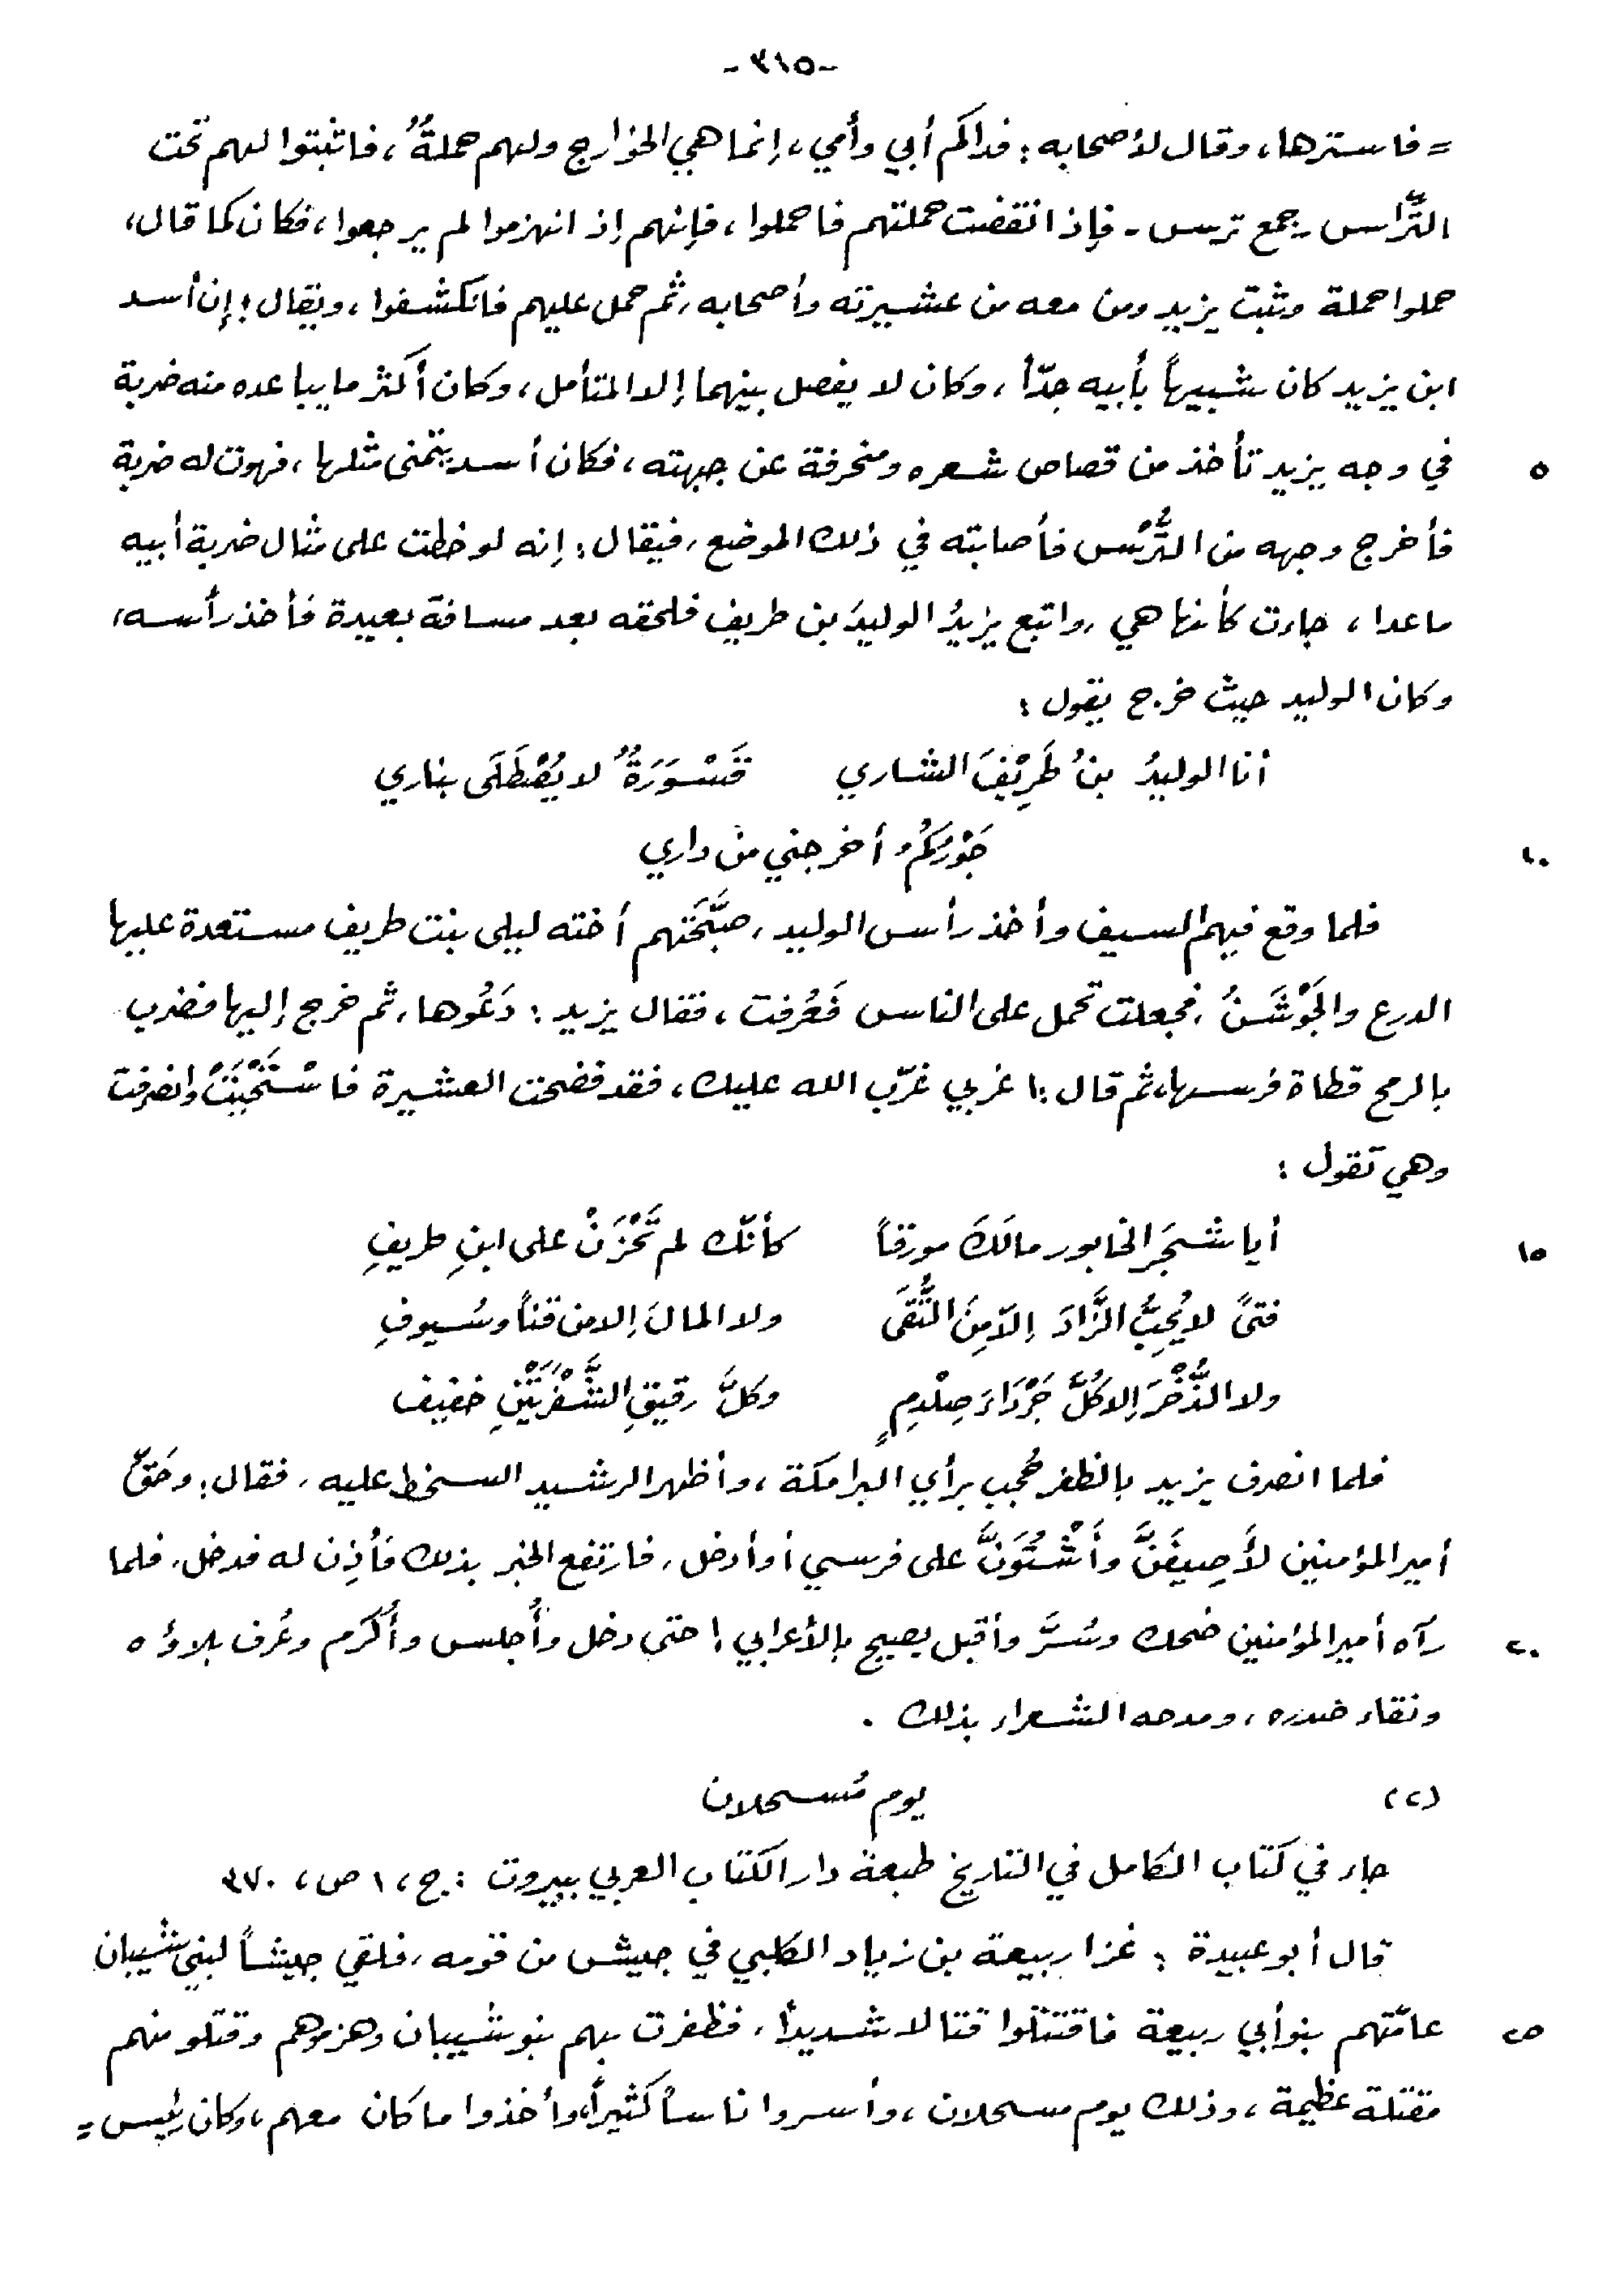 -٣١٥-
= فاستزها، وقال لأصحابه: فداكم أبي وأمي، إنما هي الخوارج ولهم حملةٌ، فاثبتوا لهم تحت
التِّرَاس -جمع ترس- فإذا نقضت حملتهم فاحملوا، فإنهم إذ انهزموا لم يرجعوا، فكان كما قال،
حملوا حملة وثبت يزيد ومن معه من عشيرته وأصحابه، ثم حمل عليهم فانكشفوا، ويقال: إن أسد
ابن يزيد كان شبيهاً بأبيه جدّاً، وكان لا يفصل بينهما إلا المتأمل، وكان أكثر ما يباعده منه ضربة
في وجه يزيد تأخذ من قصاص شعره ومنحرفة عن جبهته، فكان أسد يتمنى مثلها، فهوت له ضربة ٥
فأخرج وجهه من التُّرْس فأصابته في ذلك الموضع، فيقال: إنه لو خطت على مثال ضربة أبيه
ما عدا، جاءت كأنها هي، واتبع يزيدُ الوليدَ بن طريف فلحقه بعد مسافة بعيدة فأخذ رأسه،
وكان الوليد حيث خرج يقول:
أنا الوليدُ بنُ طَرِيْفَ الشاري قَسْوَرَةٌ لا يُصْطَلَى بناري
جَوْرُكُم أخرجني من داري ١٠
فلما وقع فيهم السيف وأخذ رأس الوليد، صبَّحَتهم أخته ليلى بنت طريف مستعدة عليها
الدرع والجَوْشَنُ، فجعلت تحمل على الناس فَعُرفت، فقال يزيد: دَعُوها، ثم خرج إليها فضرب
بالرمح قطاة فرسها، ثم قال: اغربي غرّب الله عليك، فقد فضحت العشيرة فاسْتَحْيَتْ وانصرفت
وهي تقول:
أيا شجَر الخابور مالَكَ مورقاً كأنّك لم تَحْزَنْ على ابنِ طريفِ ١٥
فتىً لا يُحِبُّ الزَّادَ إلّا مِنَ التُّقَى ولا المالَ إلا من قناً وسُيوفِ
ولا الذُّخْرَ إلا كُلَّ جَرْدَاءَ صِلْدِمٍ وكلَّ رقيقِ الشَّفْرَتَيْنِ خفيف
فلما انصرف يزيد بالظفر حُجب برأي البرامكة، وأظهر الرشيد السخط عليه، فقال: وحَقّ
أمير المؤمنين لأَصِيفَنَّ وأَشْتُوَنَّ على فرسي أو أدخل، فارتفع الخبر بذلك فأُذِن له فدخل، فلما
رآه أمير المؤمنين ضحك وسُرَّ وأقبل يصيح بالأعرابي! حتى دخل وأُجلس وأُكرم وعُرف بلاؤه ٢٠
ونقاء صدره، ومدحه الشعراء بذلك.
(٢) يوم مُسحلان
جاء في كتاب الكامل في التاريخ طبعة دار الكتاب العربي ببيروت: ج، ١ ص، ٣٧٠
قال أبو عبيدة: غزا ربيعة بن زياد الكلبي في جيش من قومه، فلقي جيشاً لبني شيبان
عامّتهم بنو أبي ربيعة فاقتتلوا قتالا شديداً، فظفرت بهم بنو شيبان وهزموهم وقتلو منهم ٢٥
مقتلة عظيمة، وذلك يوم مسحلان، وأسروا ناساً كثيراً، وأخذوا ما كان معهم، وكان رئيس =